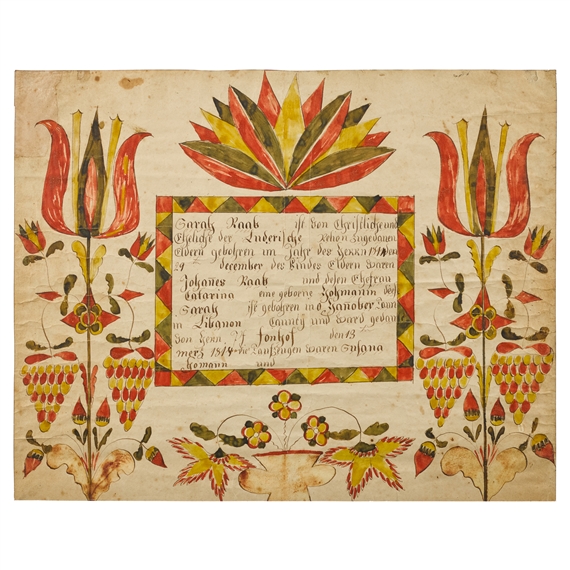 Sarah Raab ist Von Christliche und
Ehelicht der Luderische Rehon Zugedanen
Eldern gebohren im Jahr des HERRN den
29 december des Kindes Eldern Waren
Johanes Raab und desen Ehefrau
Catarina eine geborne
Sarah ist gebohren in Hanober Taun
in Libanon Caunty und Ward gedauft
Von Henn.
merz 1814 die Taufzeigen Waren Susana
und